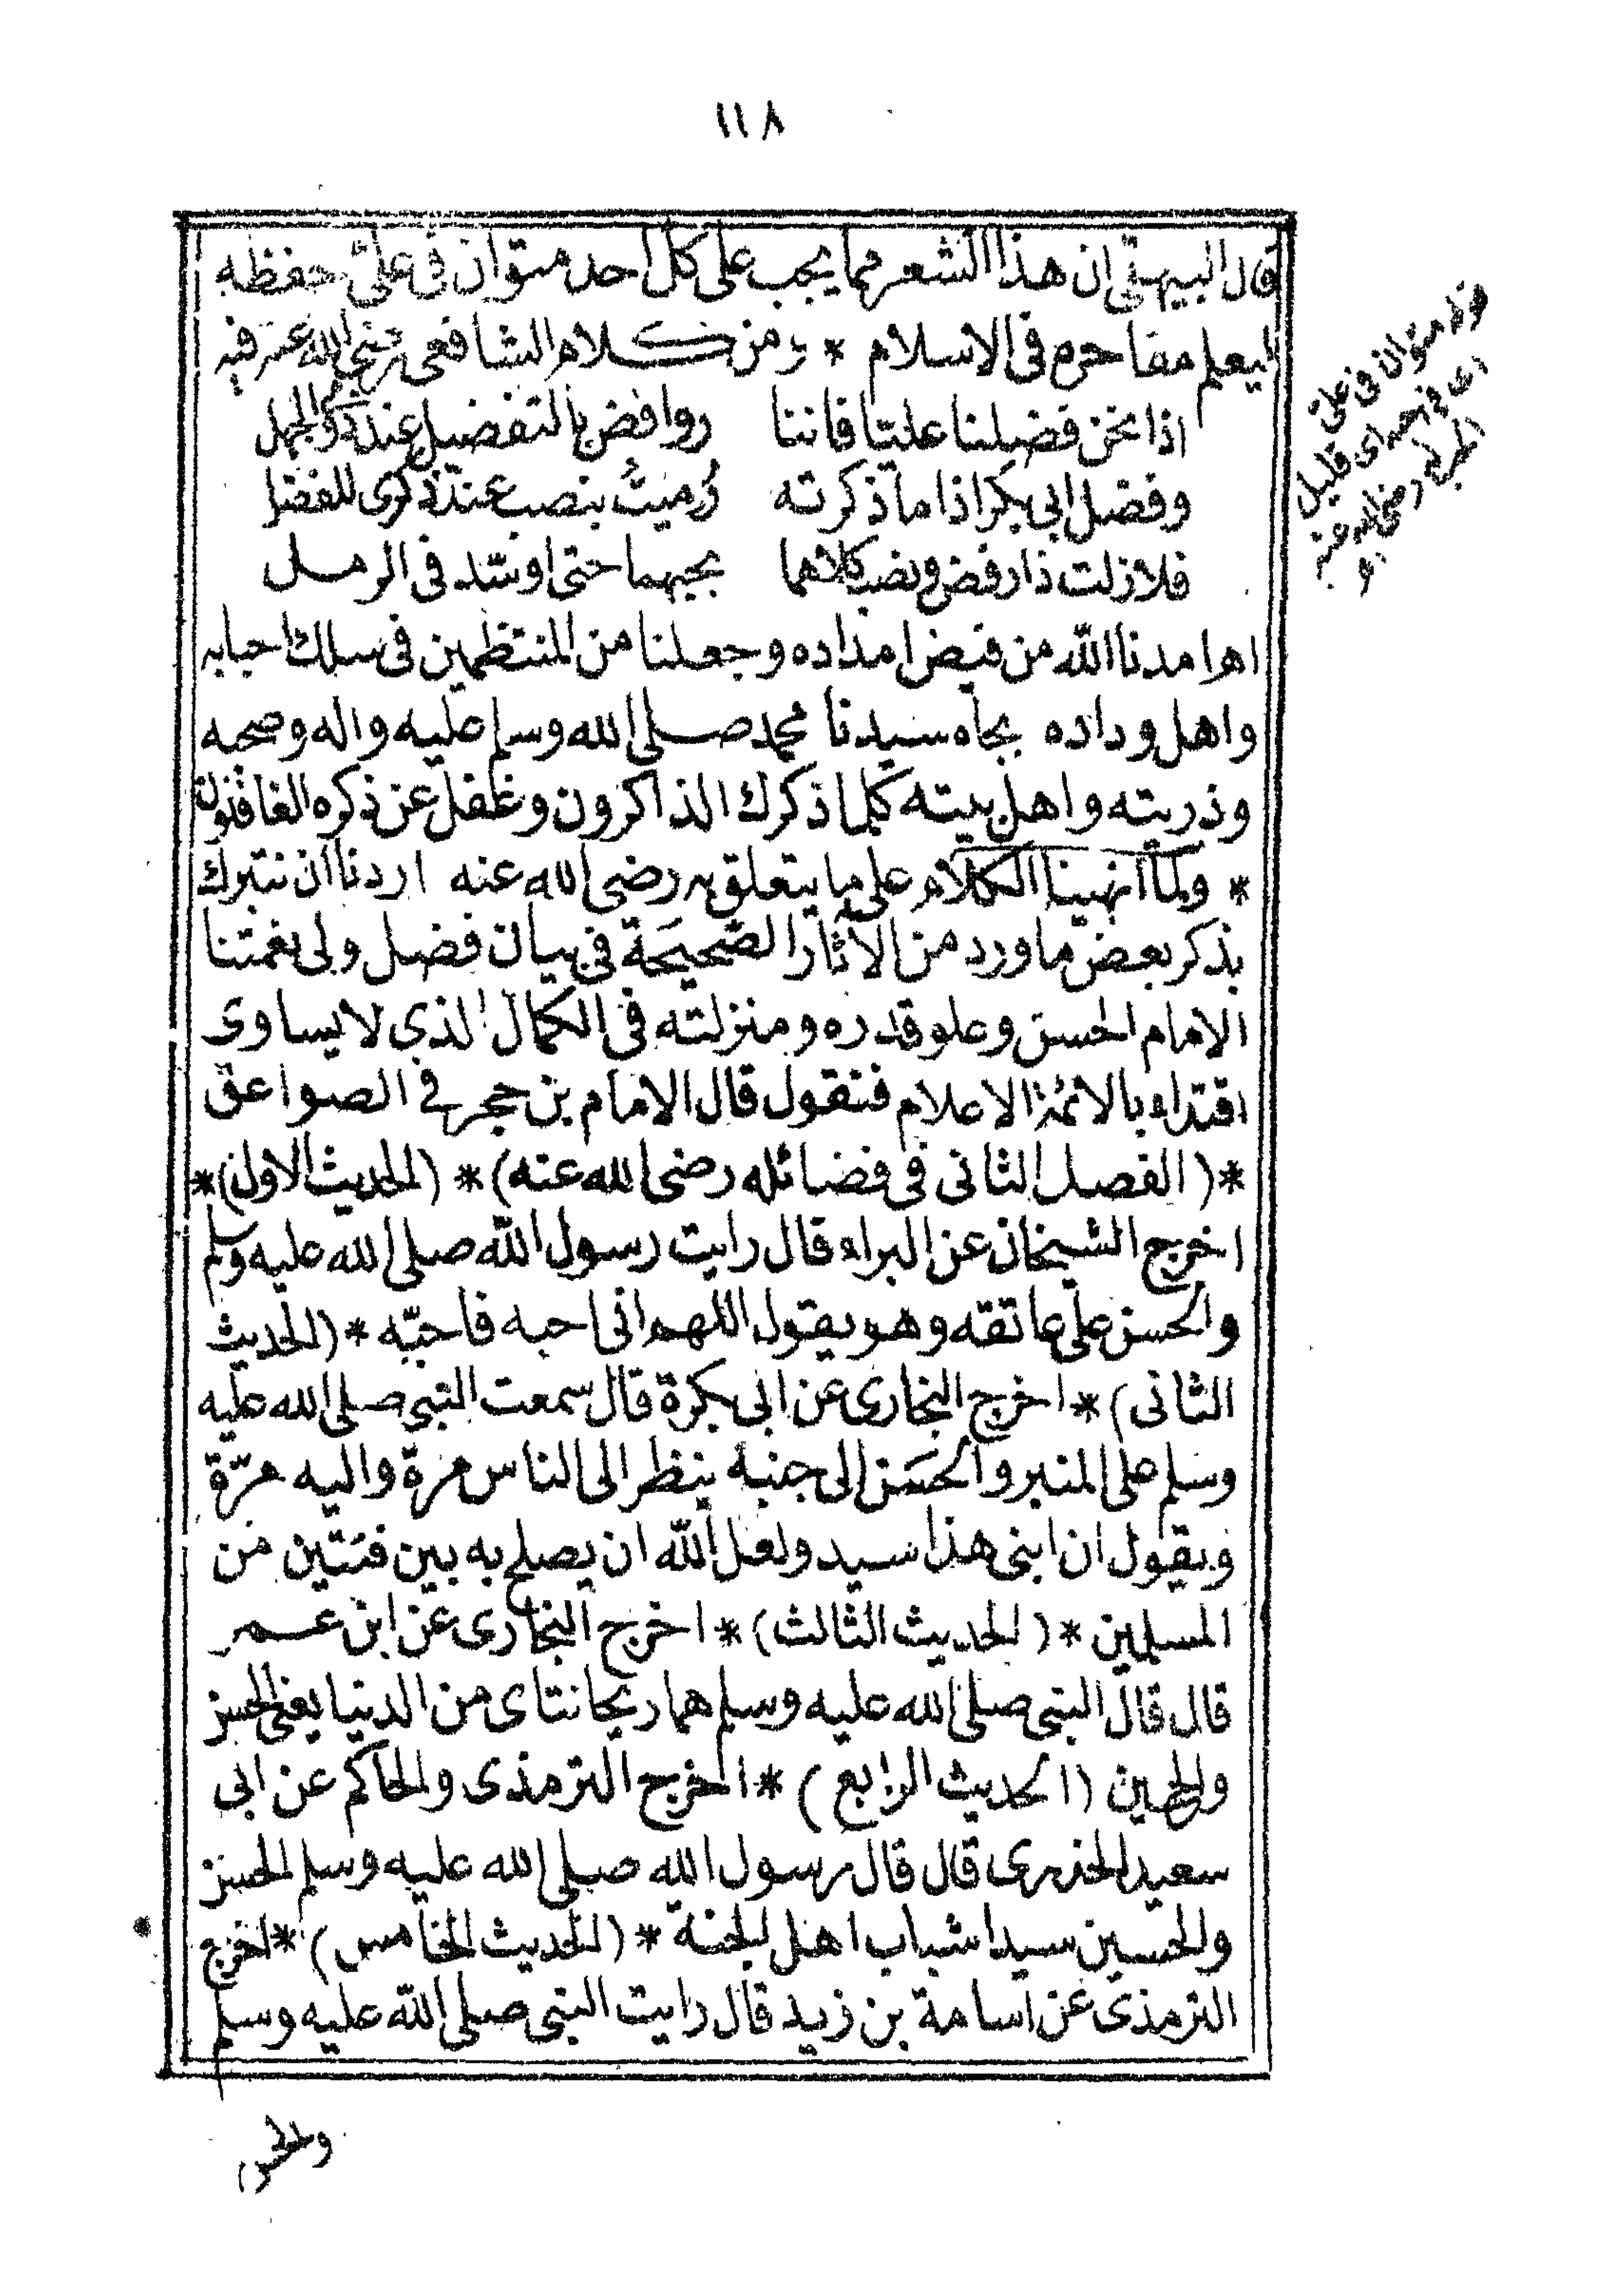 ١١٨
قال البيهقي ان هذا الشعر مما يجب على كل احد متوان فى علىّ حفظه
ليعلم مفاخره فى الاسلام * ومن كلام الشافعى رضى الله عنه فيه
اذا نحن فضلنا عليّا فاننا روافض بالتفضيل عند ذوى الجهل
وفضل ابى بكر اذا ما ذكرته رُميتُ بنصب عند ذكرى للفضل
فلا زلت ذا رفض ونصب كلاهما بحبيهما حتى اوسّد فى الرمل
اهـ امدنا اللّه من فيض امداده وجعلنا من المنتظمين فى سلك احبابه
واهل وداده بجاه سيدنا محمد صلى الله وسلم عليه واله وصحبه
وذريته واهل بيته كلما ذكرك الذاكرون وغفل عن ذكره الغافلون
* ولما انهينا الكلام على ما يتعلق به رضى الله عنه اردنا ان نتبرك
بذكر بعض ما ورد من الآثار الصَّحيحَة فى بيان فضل ولى نعمتنا
الامام الحسن وعلو قدره ومنزلته فى الكمال الذى لا يساوى
اقتداء بالائمة الاعلام فنقول قال الامام بن حجر فى الصواعق
*( الفصل الثانى فى فضائله رضى الله عنه) * (الحديث الاول)*
اخرج الشيخان عن البراء قال رايت رسول اللّه صلى الله عليه وسلم
والحسن على عاتقه وهو يقول اللهم انى احبه فاحبّه * (الحديث
الثانى) * اخرج البخارى عن ابى بكرة قال سمعت النبى صلى الله عليه
وسلم على المنبر والحسَن الى جنبه ينظر الى الناس مرة واليه مرّة
ويقول ان ابنى هذا سيد ولعل اللّه ان يصلح به بين فئتين من
المسلمين * (الحديث الثالث) * اخرج البخارى عن ابن عمر
قال قال النبى صلى الله عليه وسلم هما ريحانتاى من الدنيا يعنى الحسن
والحسين (الحديث الرابع) * اخرج الترمذى والحاكم عن ابى
سعيد الخدرى قال قال رسول الله صلى الله عليه وسلم الحسن
والحسين سيدا شباب اهل الجنة * (الحديث الخامس) * اخرج
الترمذى عن اسامة بن زيد قال رايت النبى صلى اللّه عليه وسلم
والحسن
قوله متوان فى على
اى فى حبه اى قليل
الحب له رضى الله عنه
اهـ